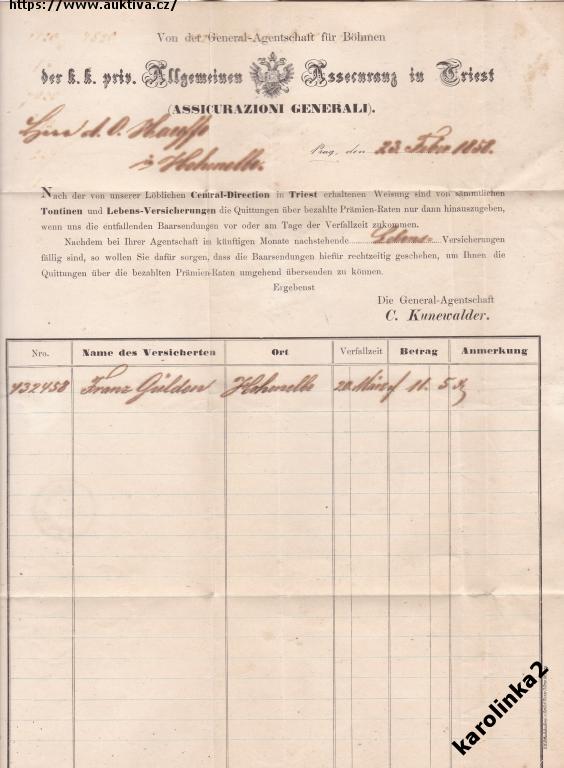 https://www.auktiva.cz/
Von der General-Agentschaft für Böhmen
der k. k. priv. Allgemeinen Assecuranz in Triest
(ASSICURAZIONI GENERALI).
Herrn
in Hohenelbe.
Prag, den 23. Febr 1858.
Nach der von unserer Löblichen Central-Direction in Triest erhaltenen Weisung sind von sämmtlichen
Tontinen und Lebens-Versicherungen die Quittungen über bezahlte Prämien-Raten nur dann hinauszugeben,
wenn uns die entfallenden Baarsendungen vor oder am Tage der Verfallzeit zukommen.
Nachdem bei Ihrer Agentschaft in künftigen Monate nachstehende Lebens- Versicherungen
fällig sind, so wollen Sie dafür sorgen, dass die Baarsendungen hiefür rechtzeitig geschehen, um Ihnen die
Quittungen über die bezahlten Prämien-Raten umgehend übersenden zu können.
Ergebenst
Die General-Agentschaft
C. Kunewalder.
Nro. Name des Versicherten Ort Verfallzeit Betrag Anmerkung
432458 Franz Gülden Hohenelbe 20 März f 11. 5
karolinka2